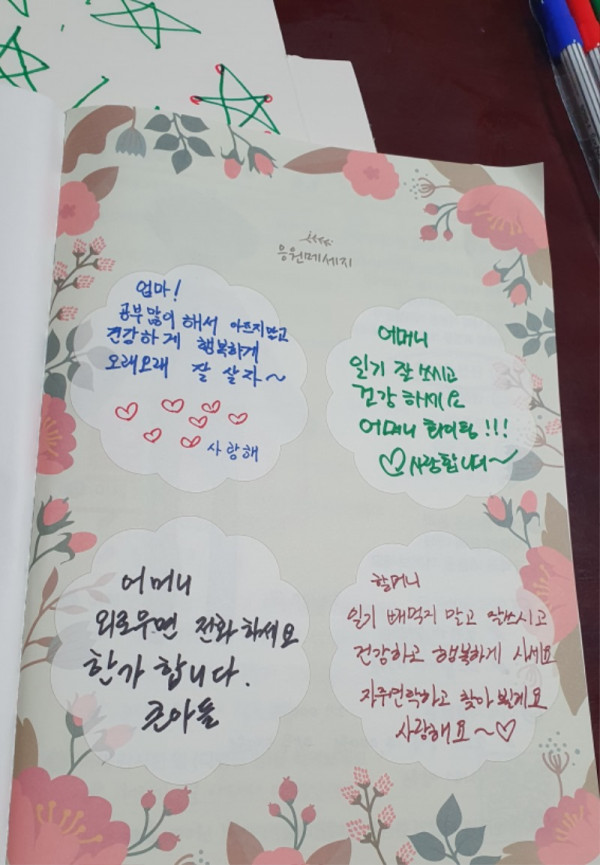 응원메세지
엄마!
공부많이 해서 아프지말고
건강하게 행복하게
오래오래 잘 살자~
사랑해
어머니
일기 잘 쓰시고
건강하세요
어머니 화이팅!!!
♡사랑합니다~
어머니
외로우면 전화하세요
한가 합니다.
큰아들
할머니
일기 빼먹지 말고 잘쓰시고
건강하고 행복하게 사세요
자주연락하고 찾아뵐게요
사랑해요~♡